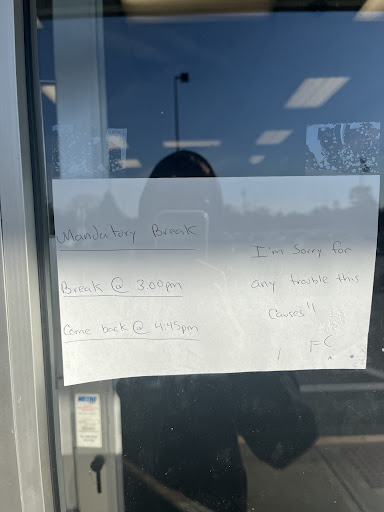 Mandatory Break
Break @ 3:00pm
Come back @ 4:45pm
I'm Sorry for
any trouble this
causes!!
FC